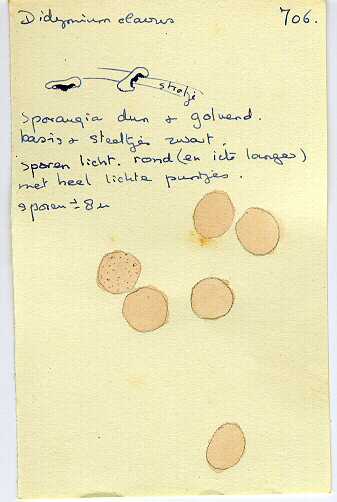 Didymium clavus 706.
strootje
Sporangia dun & golvend.
basis & steeltjes zwart.
sporen licht. rond (en iets langer)
met heel lichte puntjes.
sporen ± 8 u